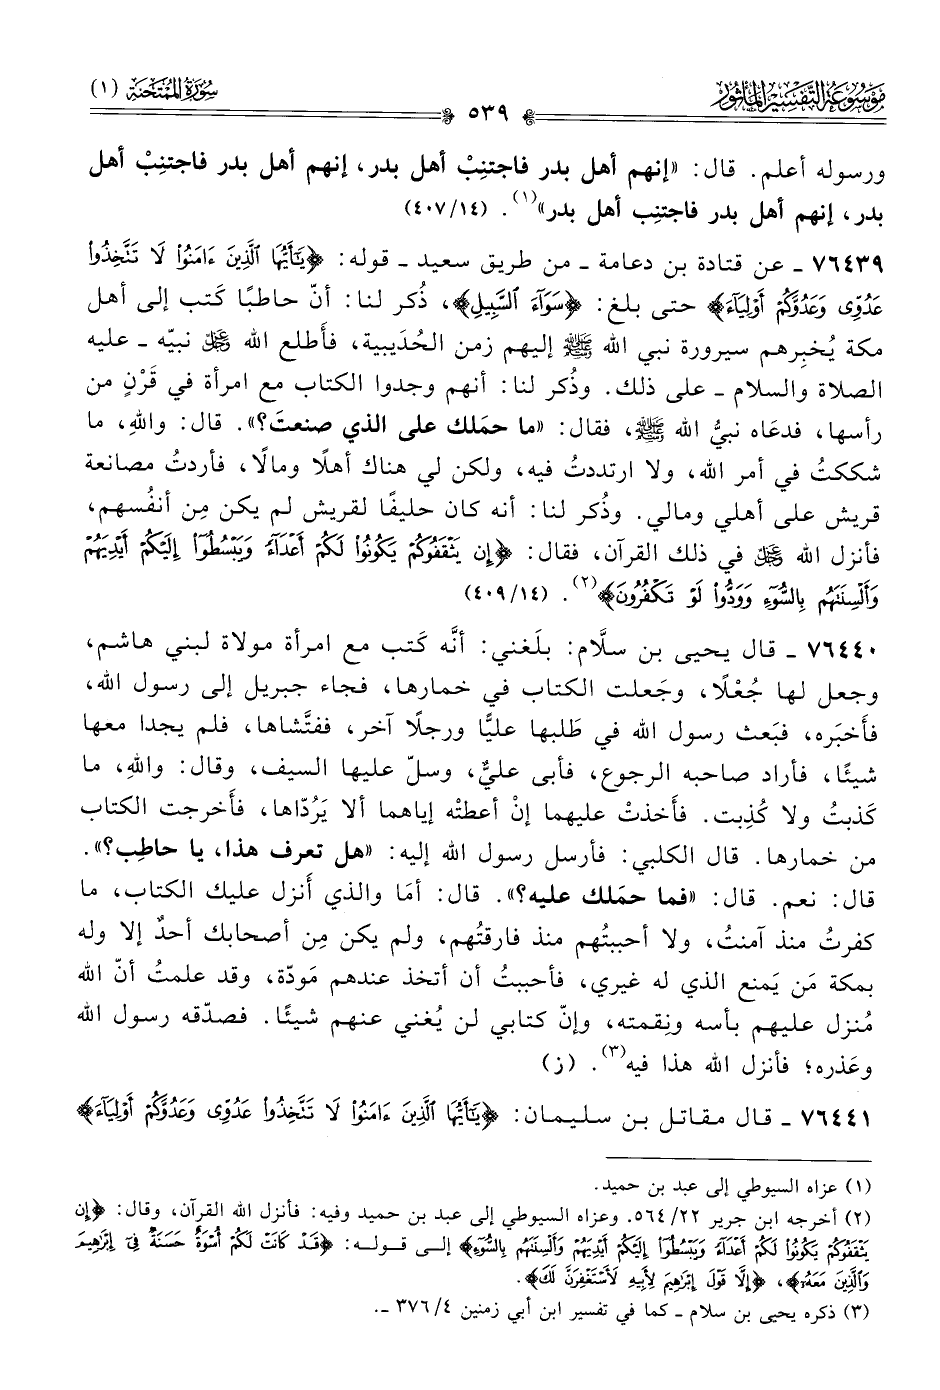 موسوعة التفسير المأثور
سورة الممتحنة (١)
٥٣٩
ورسوله أعلم. قال: «إنهم أهل بدر فاجتنِبْ أهل بدر، إنهم أهل بدر فاجتنِبْ أهل
بدر، إنهم أهل بدر فاجتنِب أهل بدر»(١). (٤٠٧/١٤)
٧٦٤٣٩ ـ عن قتادة بن دعامة ـ من طريق سعيد ـ قوله: ﴿يَٰٓأَيُّهَا ٱلَّذِينَ ءَامَنُوا۟ لَا تَتَّخِذُوا۟
عَدُوِّى وَعَدُوَّكُمْ أَوْلِيَآءَ﴾ حتى بلغ: ﴿سَوَآءَ ٱلسَّبِيلِ﴾، ذُكر لنا: أنّ حاطبًا كَتب إلى أهل
مكة يُخبِرهم سيرورة نبي الله ﷺ إليهم زمن الحُدَيبية، فأَطلع الله ﷻ نبيّه ـ عليه
الصلاة والسلام ـ على ذلك. وذُكر لنا: أنهم وجدوا الكتاب مع امرأة في قَرْنٍ من
رأسها، فدعَاه نبيُّ الله ﷺ، فقال: «ما حمَلك على الذي صنعتَ؟». قال: واللهِ، ما
شككتُ في أمر الله، ولا ارتددتُ فيه، ولكن لي هناك أهلًا ومالًا، فأردتُ مصانعة
قريش على أهلي ومالي. وذُكر لنا: أنه كان حليفًا لقريش لم يكن مِن أنفُسهم،
فأنزل الله ﷻ في ذلك القرآن، فقال: ﴿إِن يَثْقَفُوكُمْ يَكُونُوا۟ لَكُمْ أَعْدَآءً وَيَبْسُطُوٓا۟ إِلَيْكُمْ أَيْدِيَهُمْ
وَأَلْسِنَتَهُم بِٱلسُّوٓءِ وَوَدُّوا۟ لَوْ تَكْفُرُونَ﴾(٢). (٤٠٩/١٤)
٧٦٤٤٠ ـ قال يحيى بن سلَّام: بلَغني: أنَّه كَتب مع امرأة مولاة لبني هاشم،
وجعل لها جُعْلًا، وجَعلت الكتاب في خمارها، فجاء جبريل إلى رسول الله،
فأخبَره، فبَعث رسول الله في طَلبها عليًّا ورجلًا آخر، ففتَّشاها، فلم يجدا معها
شيئًا، فأراد صاحبه الرجوع، فأبى عليٌّ، وسلّ عليها السيف، وقال: واللهِ، ما
كَذبتُ ولا كُذِبت. فأَخذتْ عليهما إنْ أعطتْه إياهما ألا يَرُدّاها، فأَخرجت الكتاب
من خمارها. قال الكلبي: فأرسل رسول الله إليه: «هل تعرف هذا، يا حاطِب؟».
قال: نعم. قال: «فما حمَلك عليه؟». قال: أمَا والذي أَنزل عليك الكتاب، ما
كفرتُ منذ آمنتُ، ولا أحببتُهم منذ فارقتُهم، ولم يكن مِن أصحابك أحدٌ إلا وله
بمكة مَن يَمنع الذي له غيري، فأحببتُ أن أتخذ عندهم مَودّة، وقد علمتُ أنّ الله
مُنزل عليهم بأسه ونِقمته، وإنّ كتابي لن يُغني عنهم شيئًا. فصدّقه رسول الله
وعَذره؛ فأنزل الله هذا فيه(٣). (ز)
٧٦٤٤١ ـ قال مقاتل بن سليمان: ﴿يَٰٓأَيُّهَا ٱلَّذِينَ ءَامَنُوا۟ لَا تَتَّخِذُوا۟ عَدُوِّى وَعَدُوَّكُمْ أَوْلِيَآءَ﴾
(١) عزاه السيوطي إلى عبد بن حميد.
(٢) أخرجه ابن جرير ٢٢/ ٥٦٤. وعزاه السيوطي إلى عبد بن حميد وفيه: فأنزل الله القرآن، وقال: ﴿إِن
يَثْقَفُوكُمْ يَكُونُوا۟ لَكُمْ أَعْدَآءً وَيَبْسُطُوٓا۟ إِلَيْكُمْ أَيْدِيَهُمْ وَأَلْسِنَتَهُم بِٱلسُّوٓءِ﴾ إلى قوله: ﴿قَدْ كَانَتْ لَكُمْ أُسْوَةٌ حَسَنَةٌ فِىٓ إِبْرَٰهِيمَ
وَٱلَّذِينَ مَعَهُۥ﴾، ﴿إِلَّا قَوْلَ إِبْرَٰهِيمَ لِأَبِيهِ لَأَسْتَغْفِرَنَّ لَكَ﴾.
(٣) ذكره يحيى بن سلام ـ كما في تفسير ابن أبي زمنين ٤/ ٣٧٦ ـ.